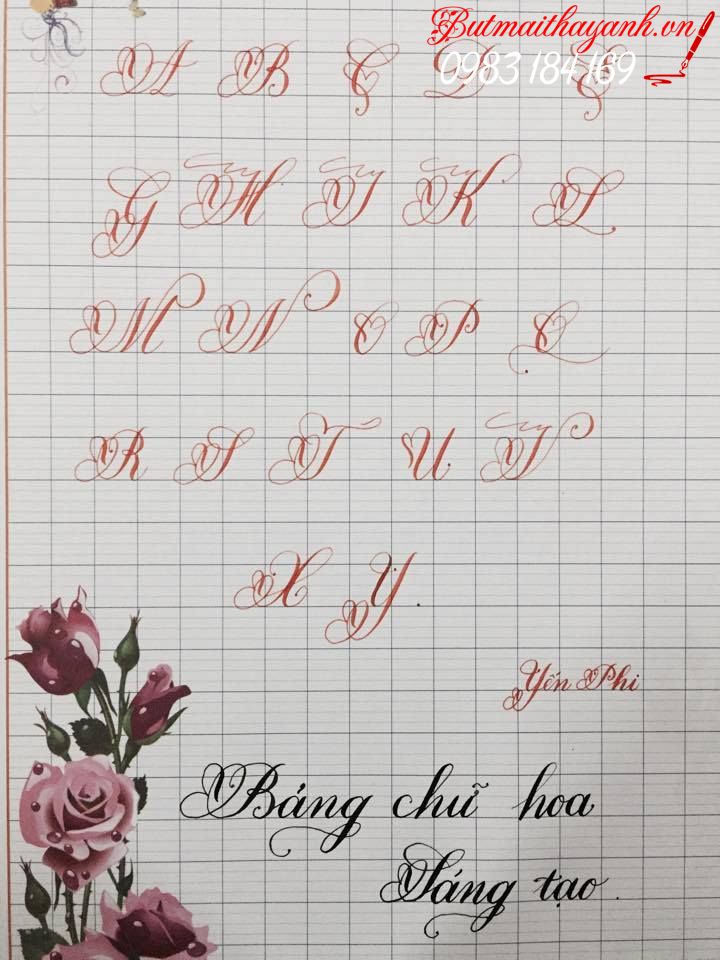 Butmaithayanh.vn
0983 184 169
A B C D E
G H I K L
M N O P Q
R S T U V
X Y .
Yến Phi
Bảng chữ hoa
Sáng tạo .